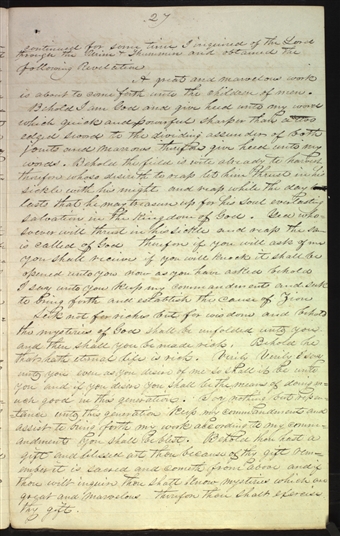 27
continued for some time I inquired of the Lord
through the Urim & Thummim and obtained the
following Revelation
A great and marvelous work
is about to come forth unto the children of men.
Behold I am God and give heed unto my word
which quick and powerful sharper than a two
edged sword to the dividing assunder of both
joints and marrow therefore give heed unto my
word. Behold the field is white already to harvest
therefore whoso desireth to reap let him thrust in his
sickle with his might and reap while the day
lasts that he may treasure up for his soul everlasting
salvation in the Kingdom of God. Yea who-
soever will thrust in his sickle and reap the same
is called of God Therefore if you will ask of me
you shall receive if you will knock it shall be
opened unto you now as you have asked Behold
I say unto you Keep my commandments and seek
to bring forth and establish the cause of Zion
Seek not for riches but for wisdom and behold
the mysteries of God shall be unfolded unto you
and then shall you be made rich. Behold he
that hath eternal life is rich. Verily Verily I say
unto you even as you desire of me so shall it be unto
you and if you desire you shall be the means of doing
much good in this generation. Say nothing but repen-
tance unto this generation Keep my commandments and
assist to bring forth my work according to my comm-
andments & you shall be blest. Behold thou hast a
gift and blessed art thou because of thy gift Rem-
ember it is sacred and cometh from above and if
thou wilt inquire thou shalt know mysteries which are
great and marvelous therefore thou shalt exercise
thy gift